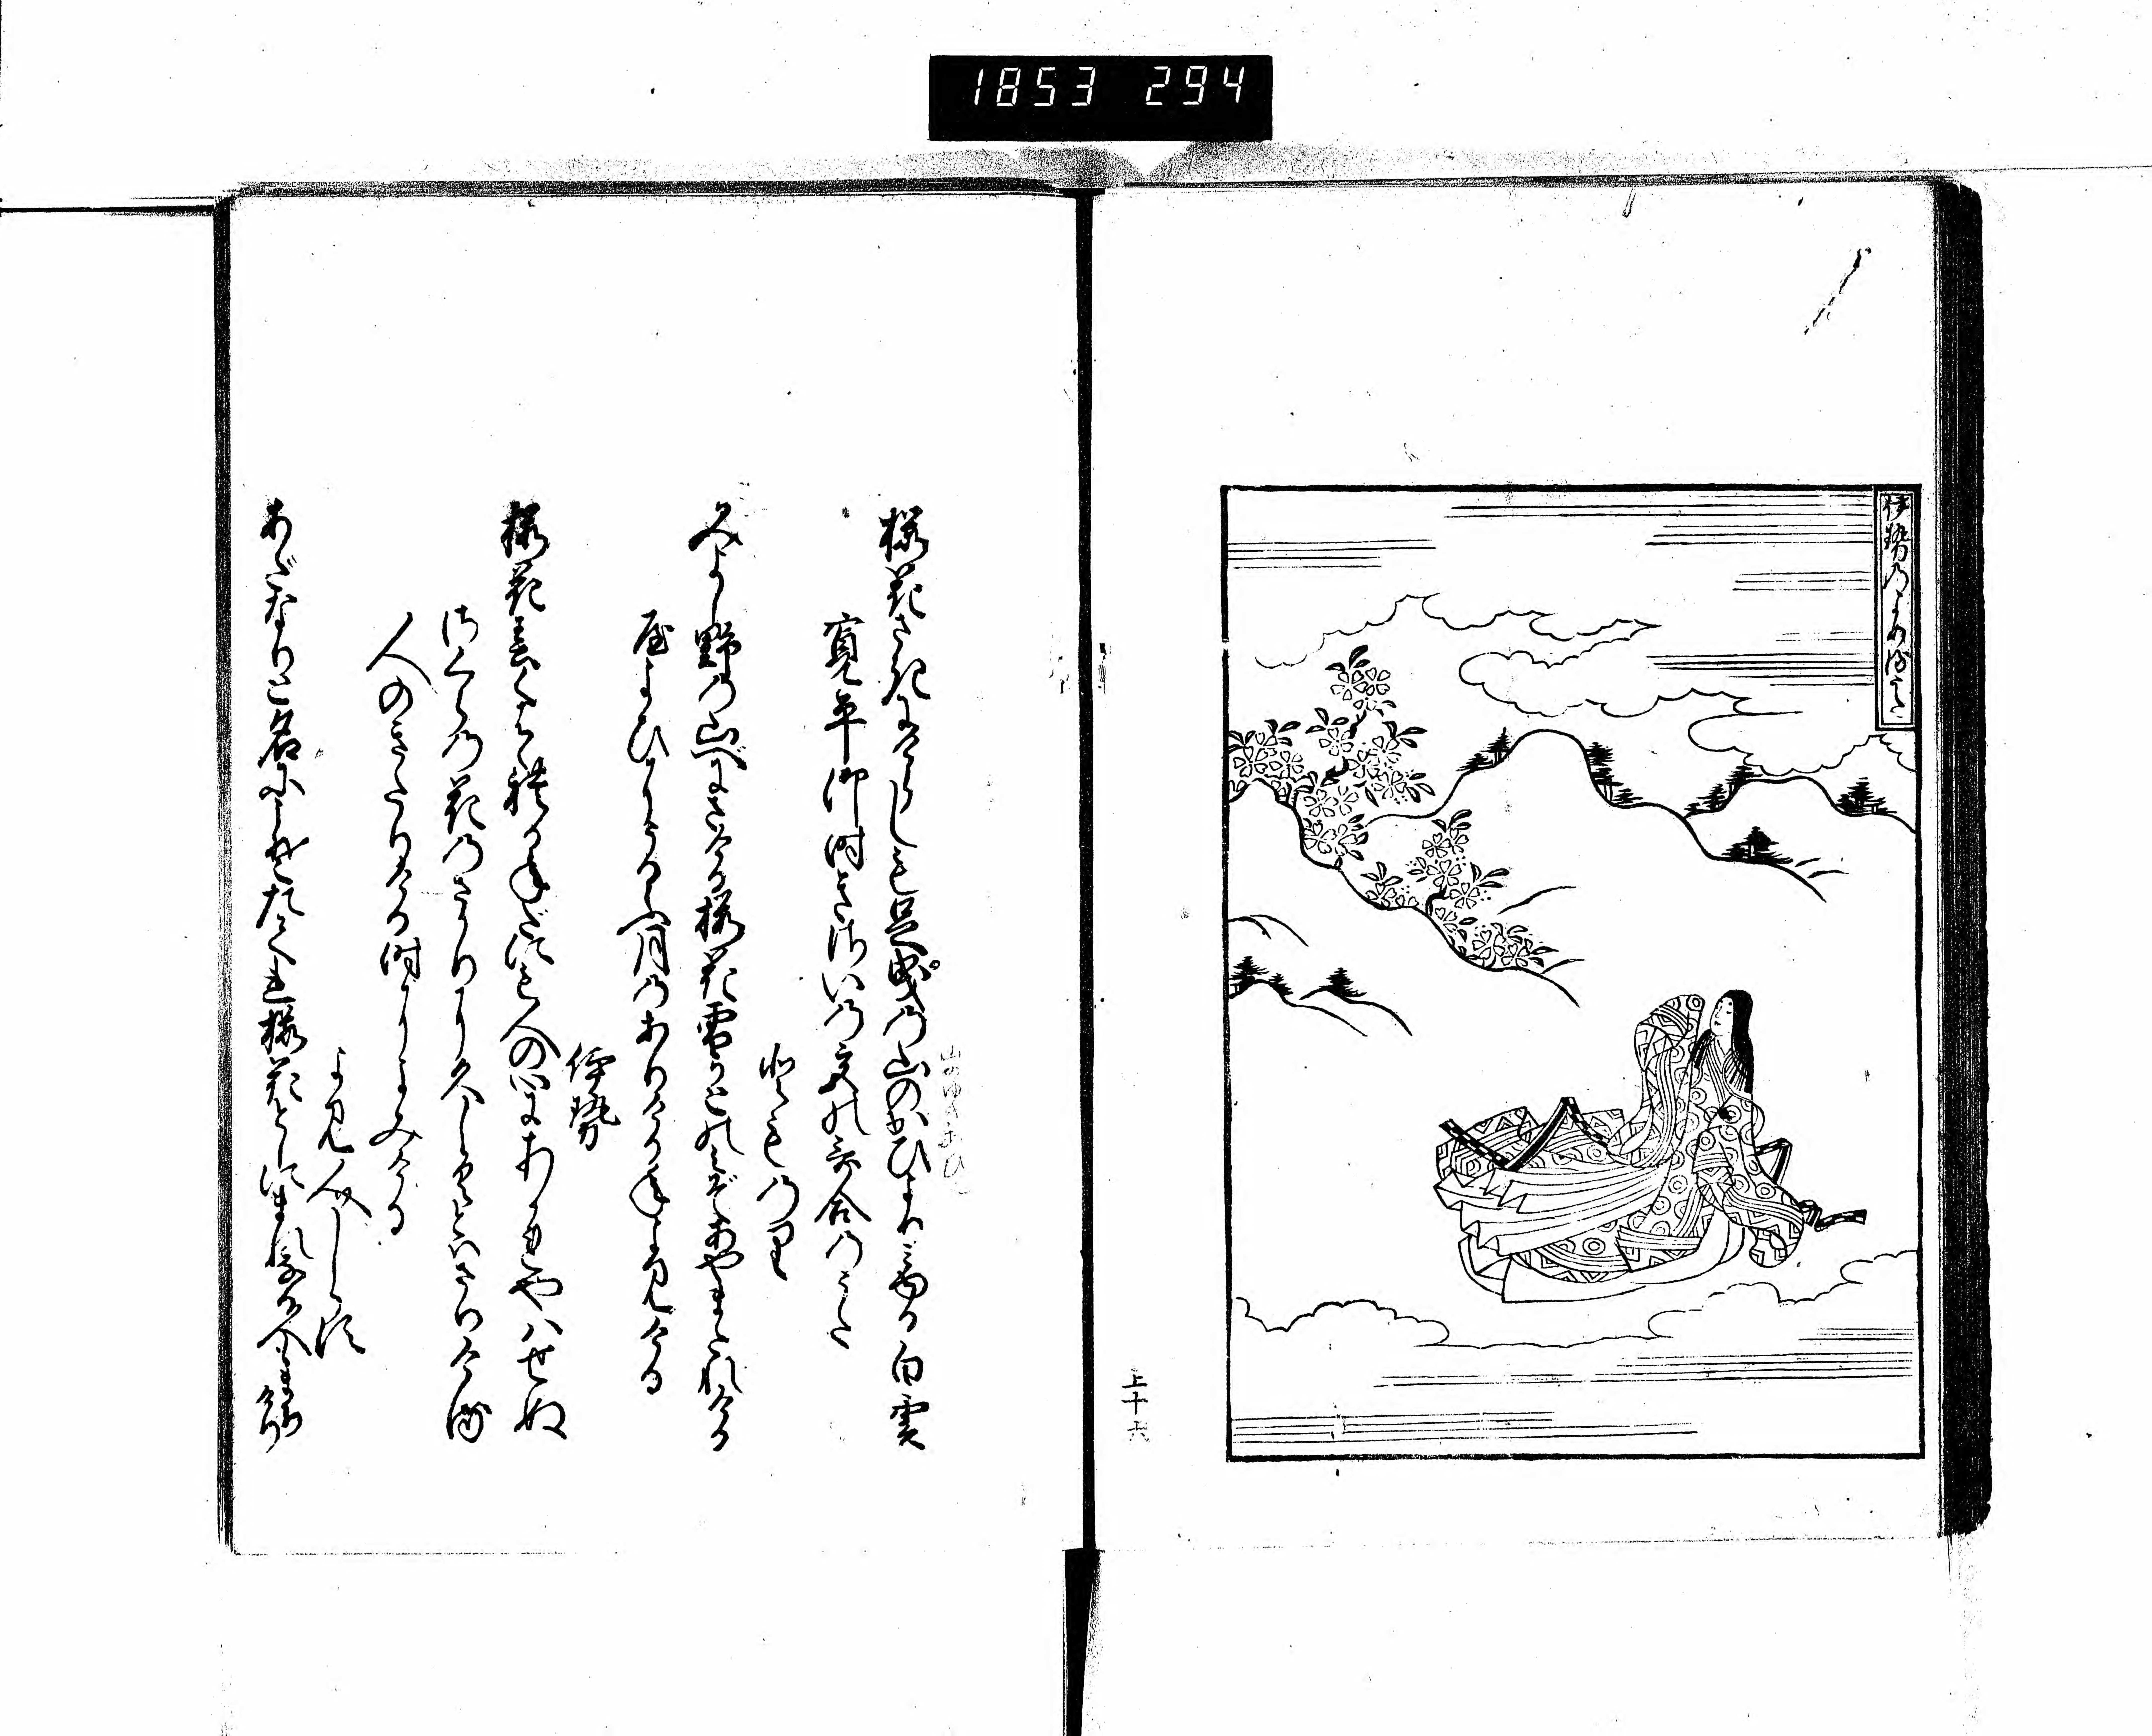 1853 294
伊勢乃よめるうた
上十六
桜花さきにけらしも足曳の山のかひよりみゆる白雲
寛平御時きさいの宮の哥合のうた
とものり
みよし野の山べにさける桜花雪かとのみぞあやまたれける
屋よひにうるふ月のありける年よみける
伊勢
桜花春くはゝれる年だにも人の心にあかれやはせぬ
さくらの花のさかりに久しくとはざりける
人のきたりける時によみける
よみ人しらず
あだなりと名にこそたてれ桜花としにまれなる人も待けり